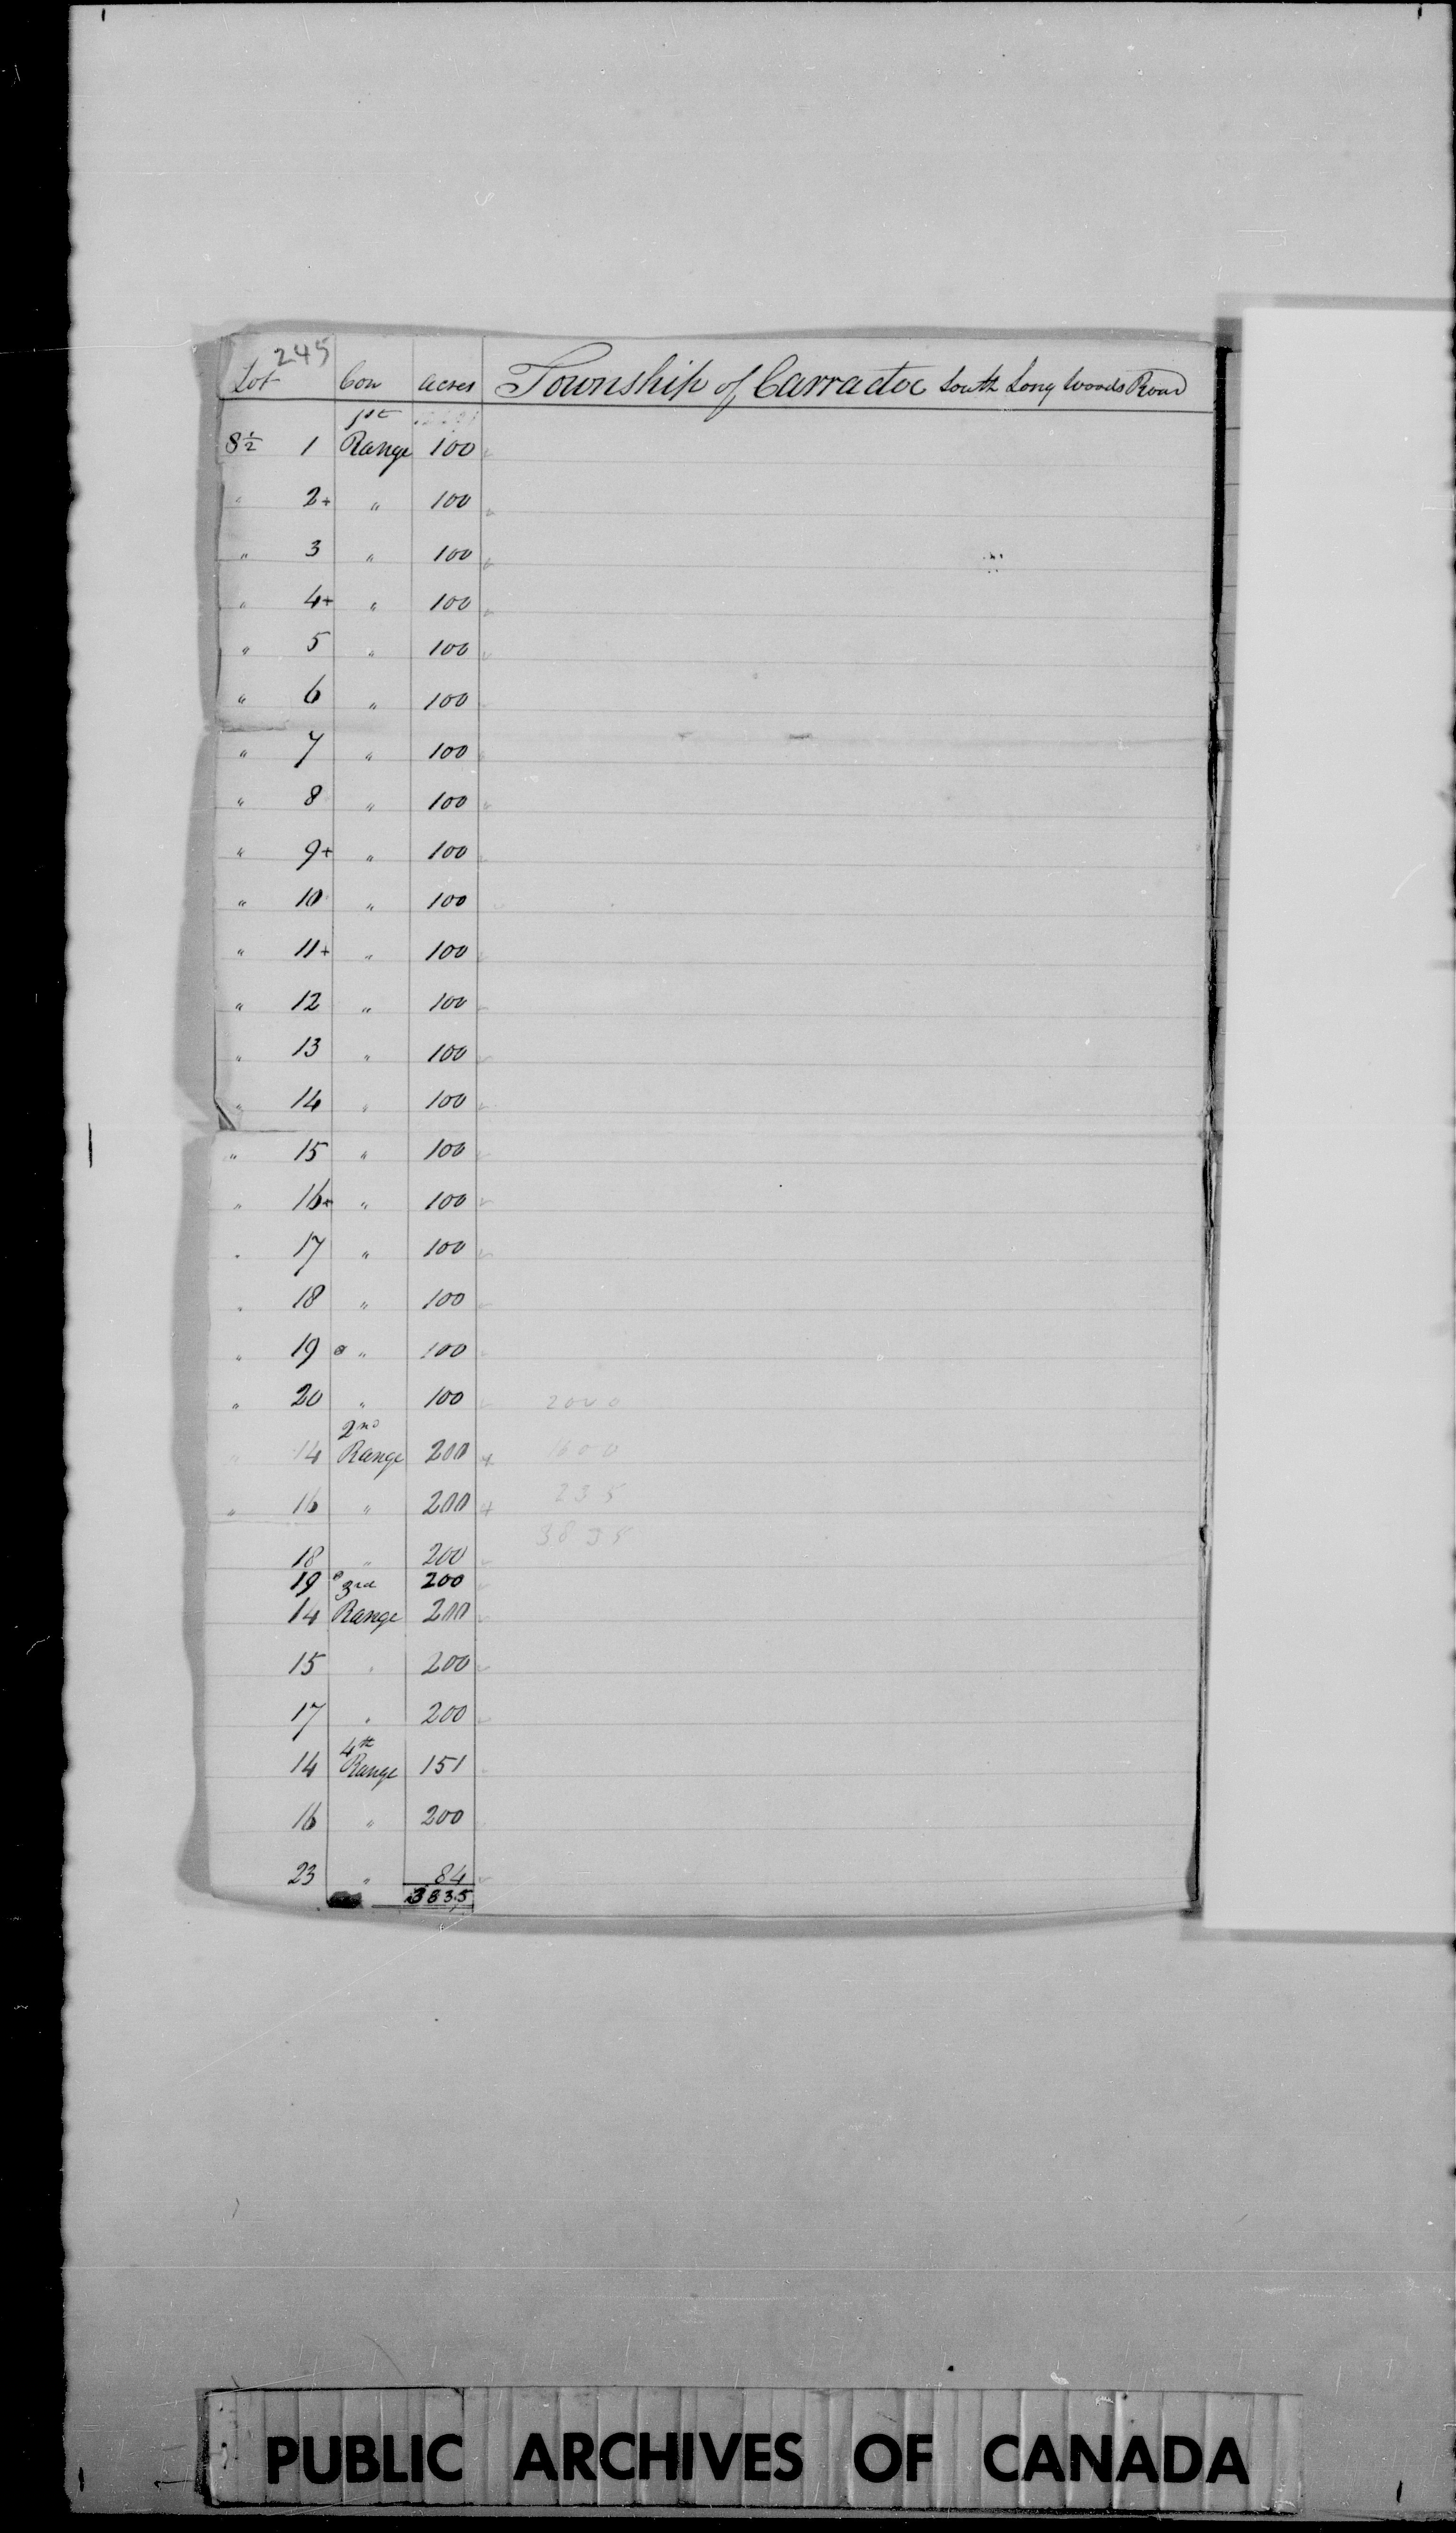 245
Lot Con acres Township of Carradoc South Long Woods Road
1st
S½ 1 Range 100
" 2+ " 100
" 3 " 100
" 4+ " 100
" 5 " 100
" 6 " 100
" 7 " 100
" 8 " 100
" 9+ " 100
" 10 " 100
" 11+ " 100
" 12 " 100
" 13 " 100
" 14 " 100
" 15 " 100
" 16+ " 100
" 17 " 100
" 18 " 100
" 19 " 100
" 20 " 100 2000
2nd
" 14 Range 200 + 1600
" 16 " 200 + 235
3835
18 " 200
19 3rd 200
14 Range 200
15 " 200
17 " 200
4th
14 Range 151
16 " 200
23 " 84
3835
PUBLIC ARCHIVES OF CANADA